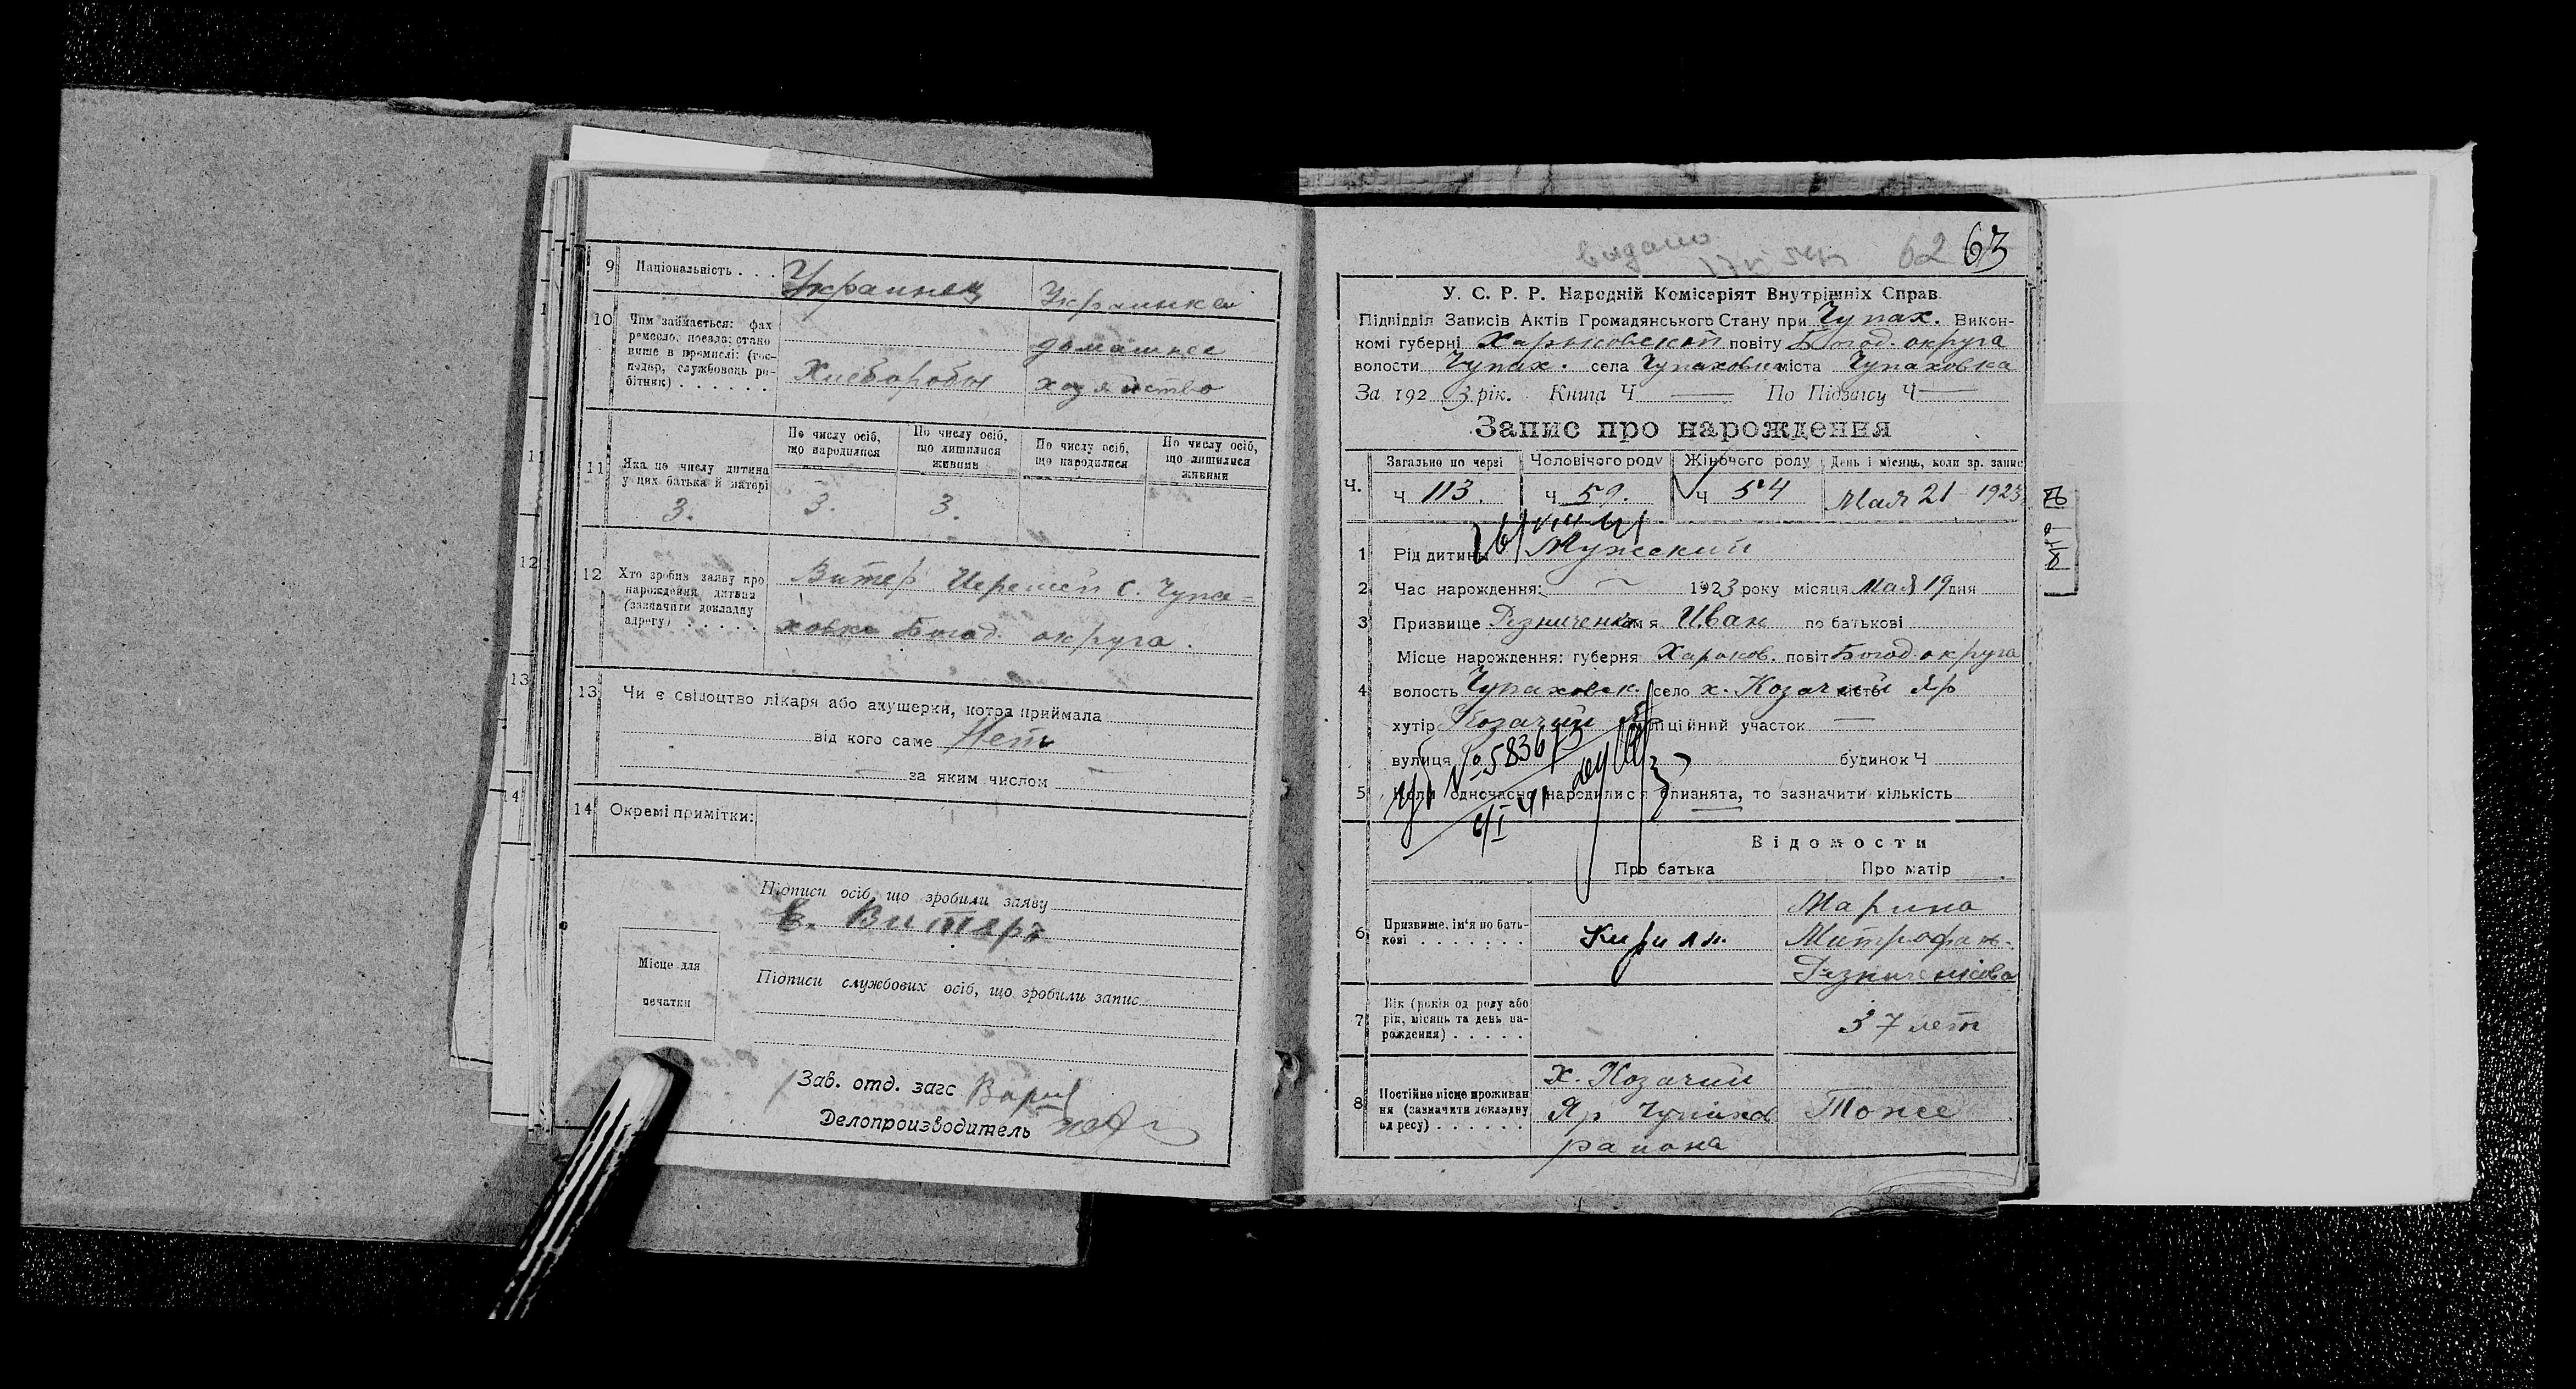 9 Національність . . . Украинец Украинка
10 Чим займається: фах
ремесло, посада; стано
вище в промислі: (гос-
подар, службовець ро-
бітник) . . . . . . .
Хлебороби
домашнее
хозяйство
11 Яка по числу дитина
у цих батька й матері
3.
По числу осіб,
що народилися
3.
По числу осіб,
що лишилися
живими
3.
По числу осіб,
що народилися
По числу осіб,
що лишилися
живими
12 Хто зробив заяву про
народження дитини
(зазначити докладну
адресу) . . . . .
Витер Иеремей с. Чупа=
ховка Богод. округа.
13 Чи є свідоцтво лікаря або акушерки, котра приймала
від кого саме Нет
за яким числом —
14 Окремі примітки:
Підписи осіб, що зробили заяву
Витеръ
Місце для
печатки
Підписи службових осіб, що зробили запис
Зав. отд. загс
Делопроизводитель
11
12
13
14
видано
62 63
У. С. Р. Р. Народній Комісаріят Внутрішніх Справ.
Підвідділ Записів Актів Громадянського Стану при Чупах. Викон-
комі губерні Харьковской повіту Богод. округа
волости Чупах. села Чупаховка міста Чупаховка
За 1923 рік. Книга Ч — По Підзагсу Ч —
Запис про нарождення
Ч.
Загально по черзі Чоловічого роду Жіночого роду День і місяць, коли зр. запис
Ч 113. Ч 59. Ч 54 Мая 21 1923
1 Рід дитини Мужский
2 Час нарождення: 1923 року місяця Мая 19 дня
3 Призвище Резниченко ім'я Иван по батькові
4 Місце нарождення: губерня Харьков. повіт Богод. округа
волость Чупаховск. село х. Козачий місто Яр
хутір Козачий Яр міліційний участок —
вулиця будинок Ч
№ 583673
5 Коли одночасно народилися близнята, то зазначити кількість
Відомости
Про батька Про матір
6 Призвище, ім'я по бать-
кові . . . . . . .
Кирилл.
Марина
Митрофан.
Резниченкова
7 Вік (років од роду або
рік, місяць та день на-
рождення) . . . . .
37 лет
8 Постійне місце проживан
ня (зазначити докладну
адресу) . . . . . .
х. Козачий
Яр Чупахов
района
Тоже